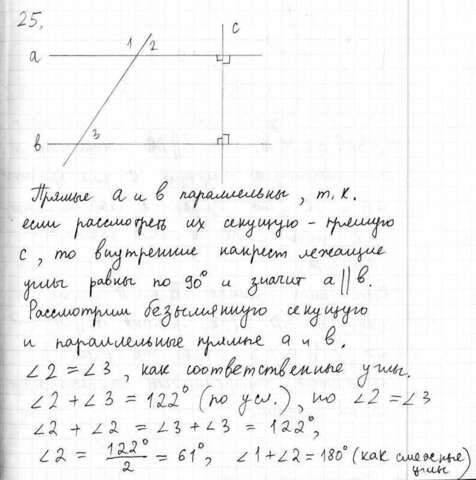 25.
c
1 2
a
3
в
Прямые a и в параллельны, т.к.
если рассмотреть их секущую - прямую
c, то внутренние накрест лежащие
углы равны по 90° и значит a || в.
Рассмотрим безымянную секущую
и параллельные прямые a и в.
∠2 = ∠3, как соответственные углы.
∠2 + ∠3 = 122° (по усл.), но ∠2 = ∠3
∠2 + ∠2 = ∠3 + ∠3 = 122°,
∠2 = 122°/2 = 61°, ∠1 + ∠2 = 180° (как смежные
углы)